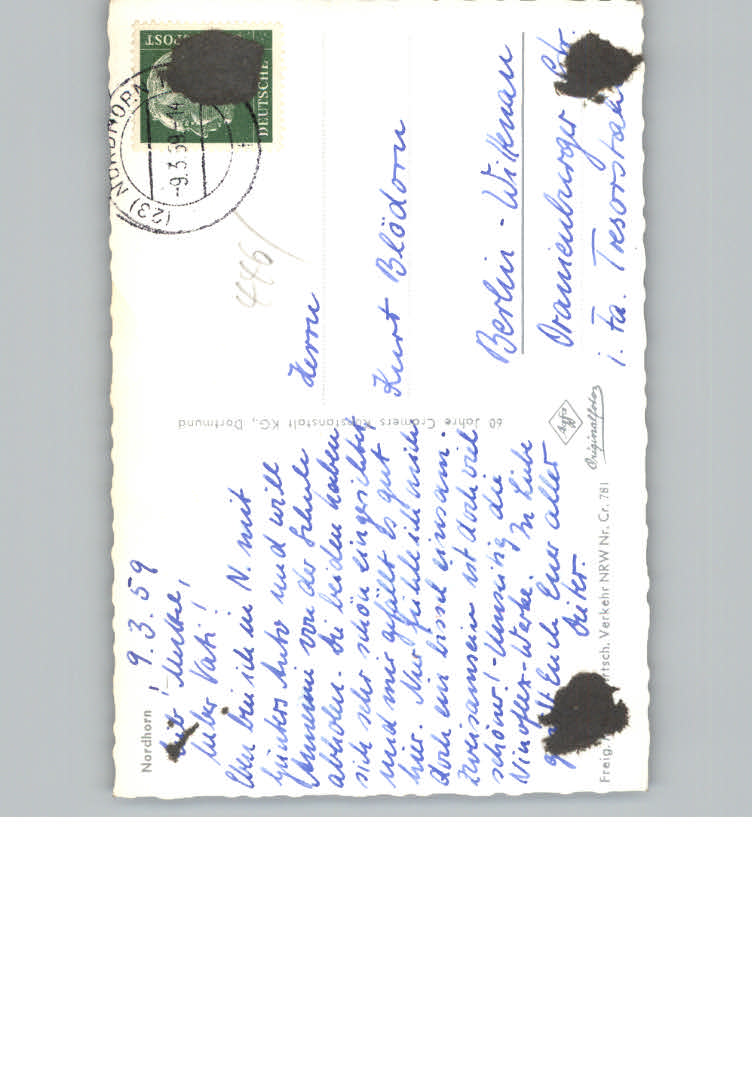 Nordhorn
9.3.59
Liebe Mutti,
lieber Vati!
Nun bin ich in N. mit
Günters Auto und will
Annemie von der Schule
abholen. Die beiden haben
sich sehr schön eingerichtet
und mir gefällt es gut
hier. Nur fühle ich mich
doch ein bissel einsam.
Zweisamsein ist doch viel
schöner! - Umseitig die
Ninoflex-Werke. In Liebe
grüßt Euch Euer aller
Freig. Verkehr NRW Nr. Cr. 781
60 Jahre Cramers Kunstanstalt KG., Dortmund
Agfa
Originalfoto
DEUTSCHE
POST
(23) NORDHORN
-9.3.59-14
446
Herrn
Kurt Blödorn
Berlin-Wittenau
Oranienburger Str.
i. Fa. Tresorstahl